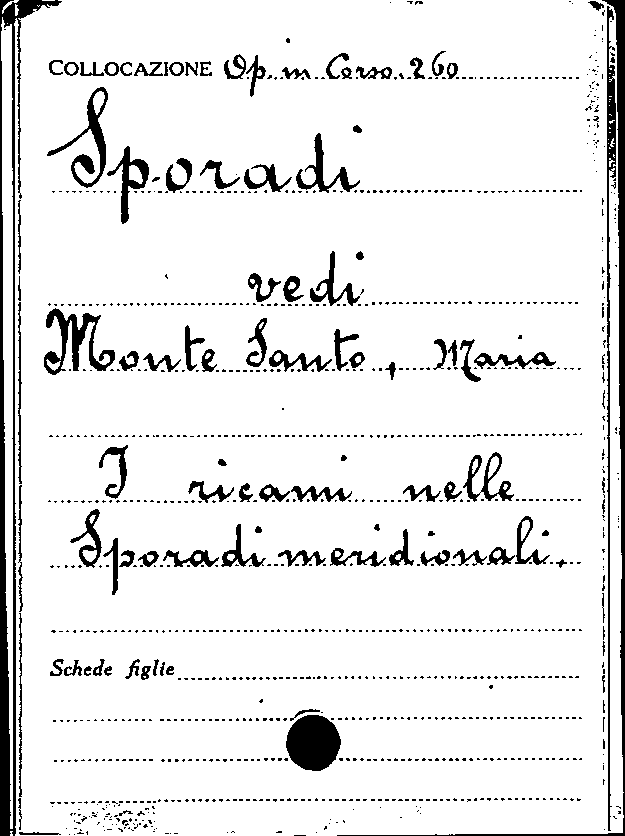 COLLOCAZIONE Op. in Corso. 260
Sporadi
vedi
Monte Santo, Maria
I ricami nelle
Sporadi meridionali.
Schede figlie